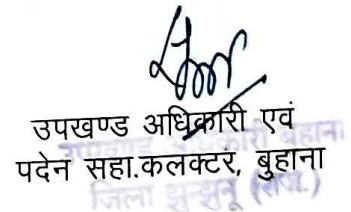 उपखण्ड अधिकारी एवं
पदेन सहा.कलक्टर, बुहाना
उपखण्ड अधिकारी बुहाना
जिला झुन्झुनू (राज.)